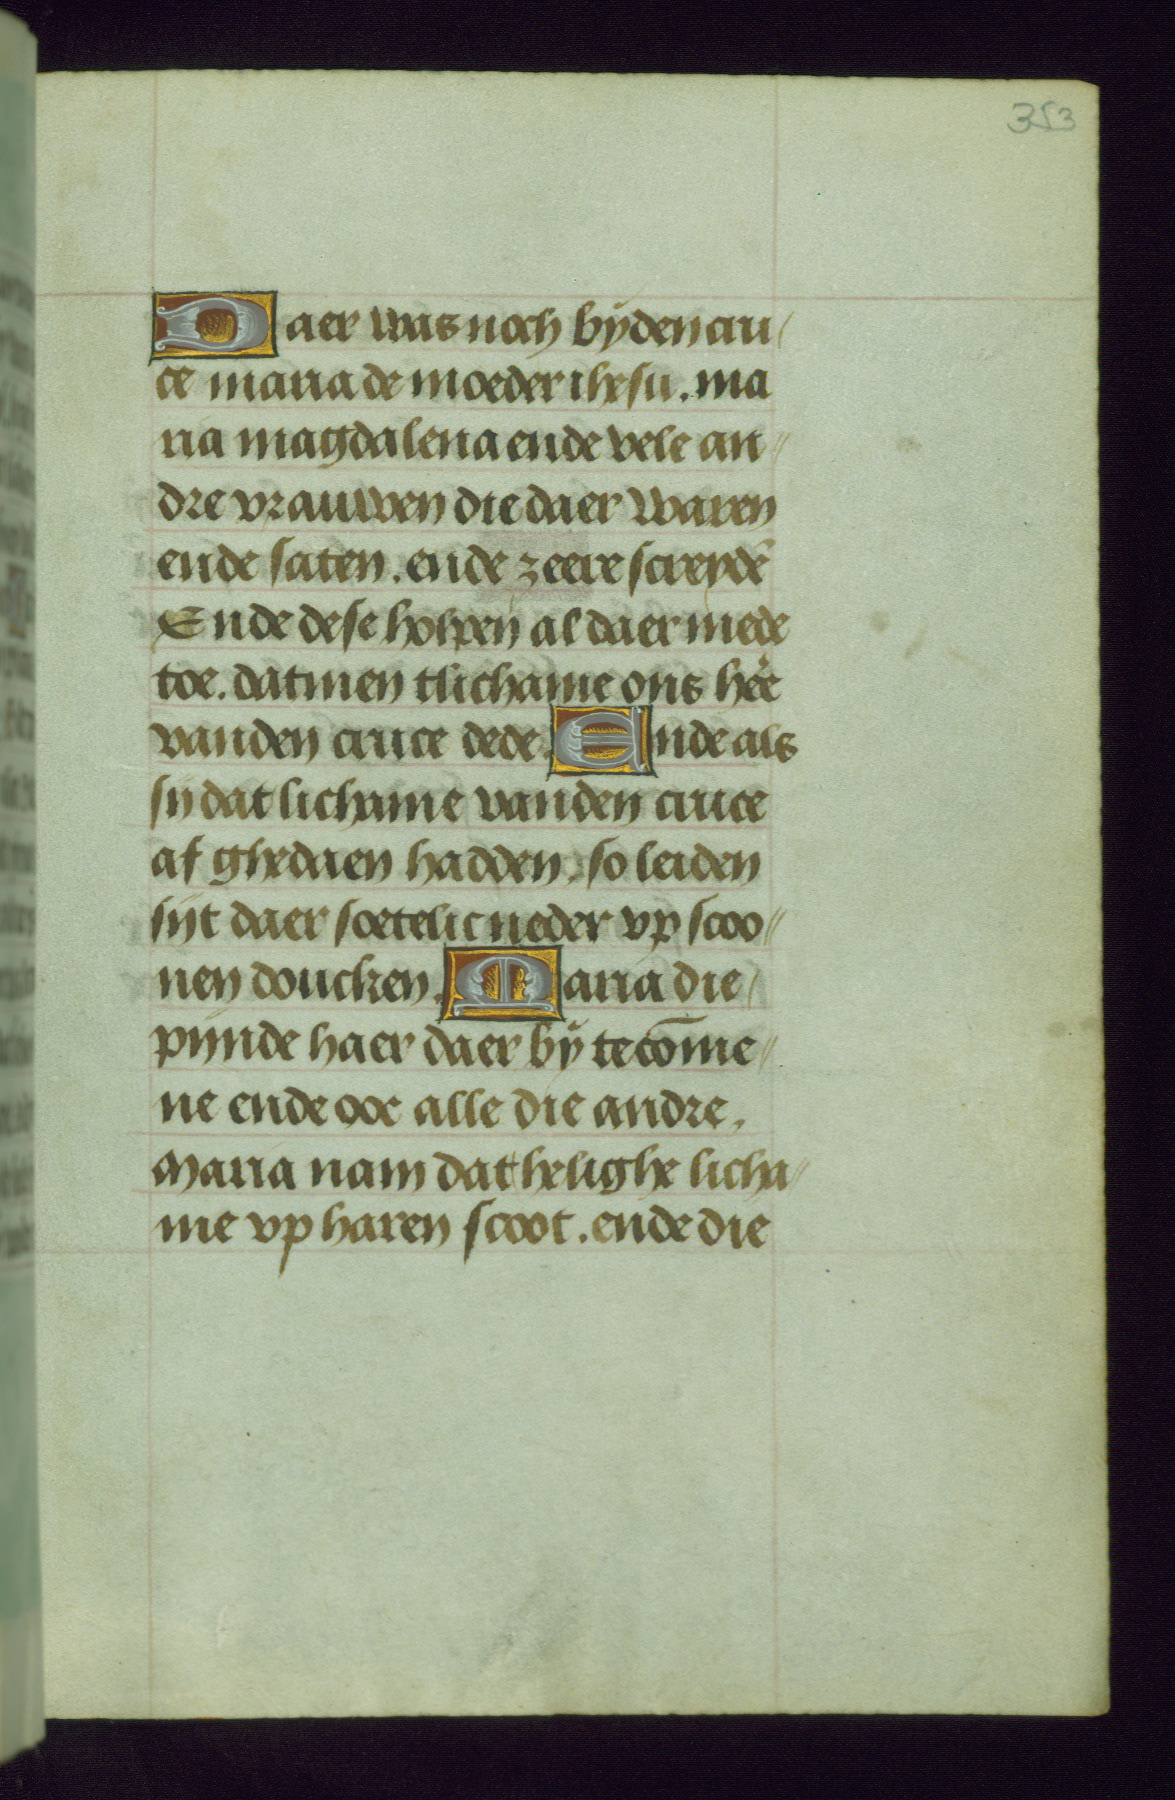 353
Daer was noch bÿden cru/
ce maria de moeder ihesu. ma
ria magdalena ende vele an//
dre vrauwen die daer waren
ende saten. ende zeere screydē
Ende dese holpen al daer mede
toe. datmen tlichame ons hēe
vanden cruce dede. Ende als
sij dat lichame vanden cruce
af ghedaen hadden. so leiden
sijt daer soetelic neder vp scoo//
nen doucken. Maria die/
pijnde haer daer bÿ te cōme//
ne ende ooc alle die andre.
Maria nam dat helighe licha//
me vp haren scoot. ende die